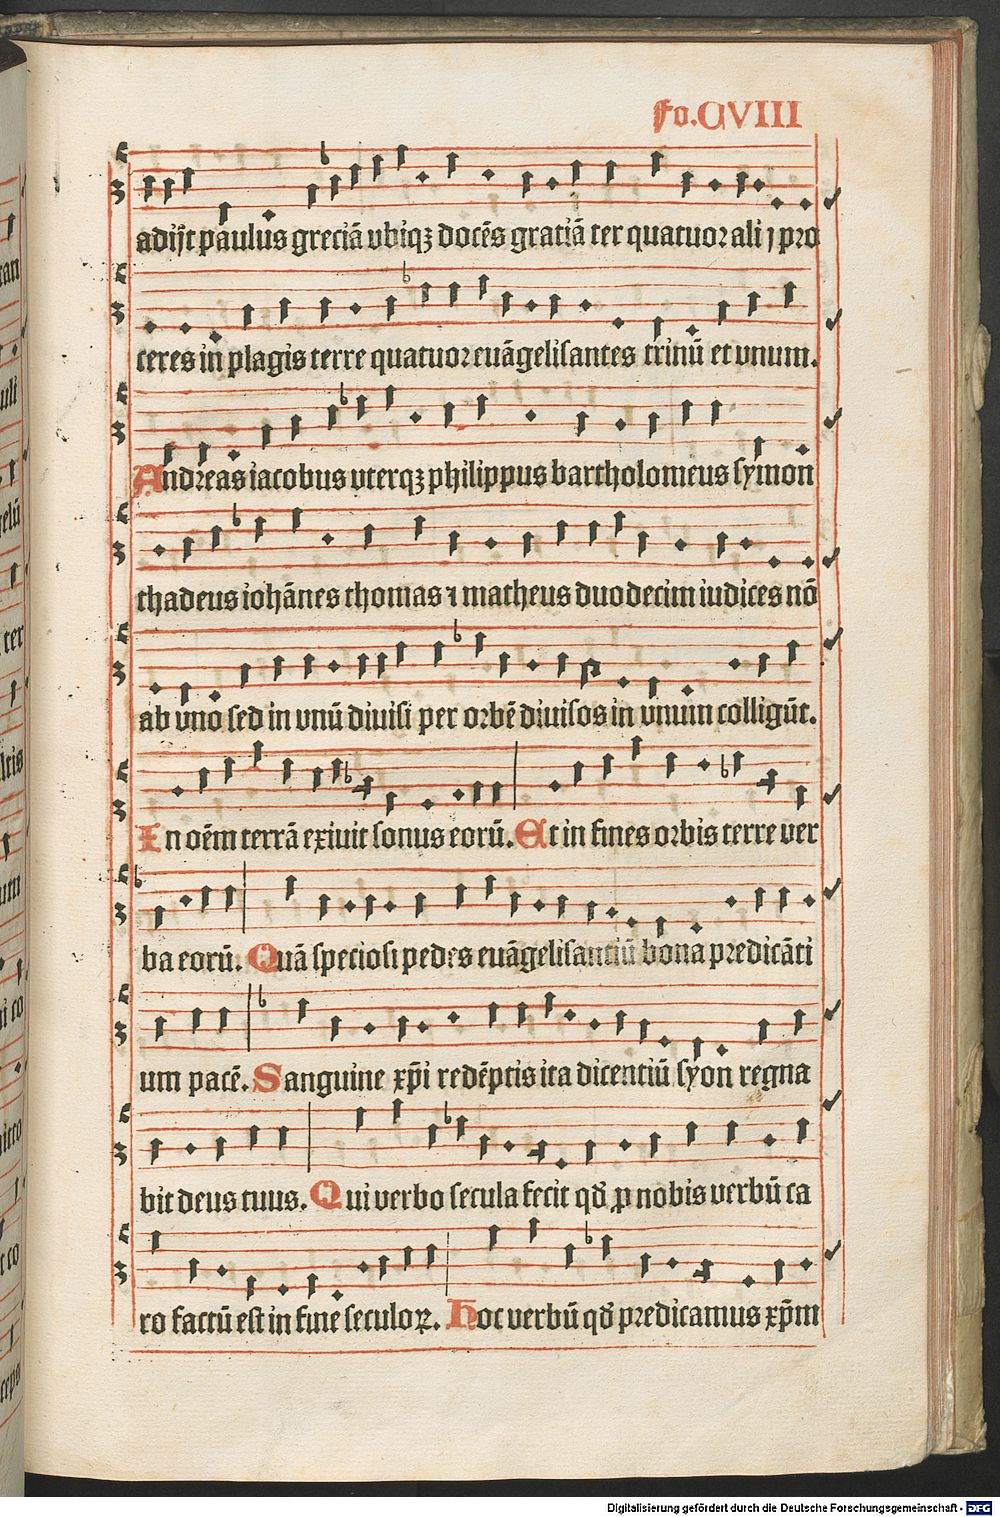 Fo.CVIII
adijt paulus greciā vbiqꝫ docēs gratiā ter quatuor alij pro
ceres in plagis terre quatuor euāgelisantes trinū et vnum.
Andreas iacobus vterqꝫ philippus bartholomeus symon
thadeus iohānes thomas ⁊ matheus duodecim iudices nō
ab vno sed in vnū diuisi per orbē diuisos in vnum colligūt.
In oēm terrā exiuit sonus eorū. Et in fines orbis terre ver
ba eorū. Quā speciosi pedes euāgelisantiū bona predicāti
um pacē. Sanguine xp̄i redēptis ita dicentiū syon regna
bit deus tuus. Qui verbo secula fecit qd̄ ꝓ nobis verbū ca
ro factū est in fine seculoꝝ. Hoc verbū qd̄ predicamus xp̄m
Digitalisierung gefördert durch die Deutsche Forschungsgemeinschaft - DFG